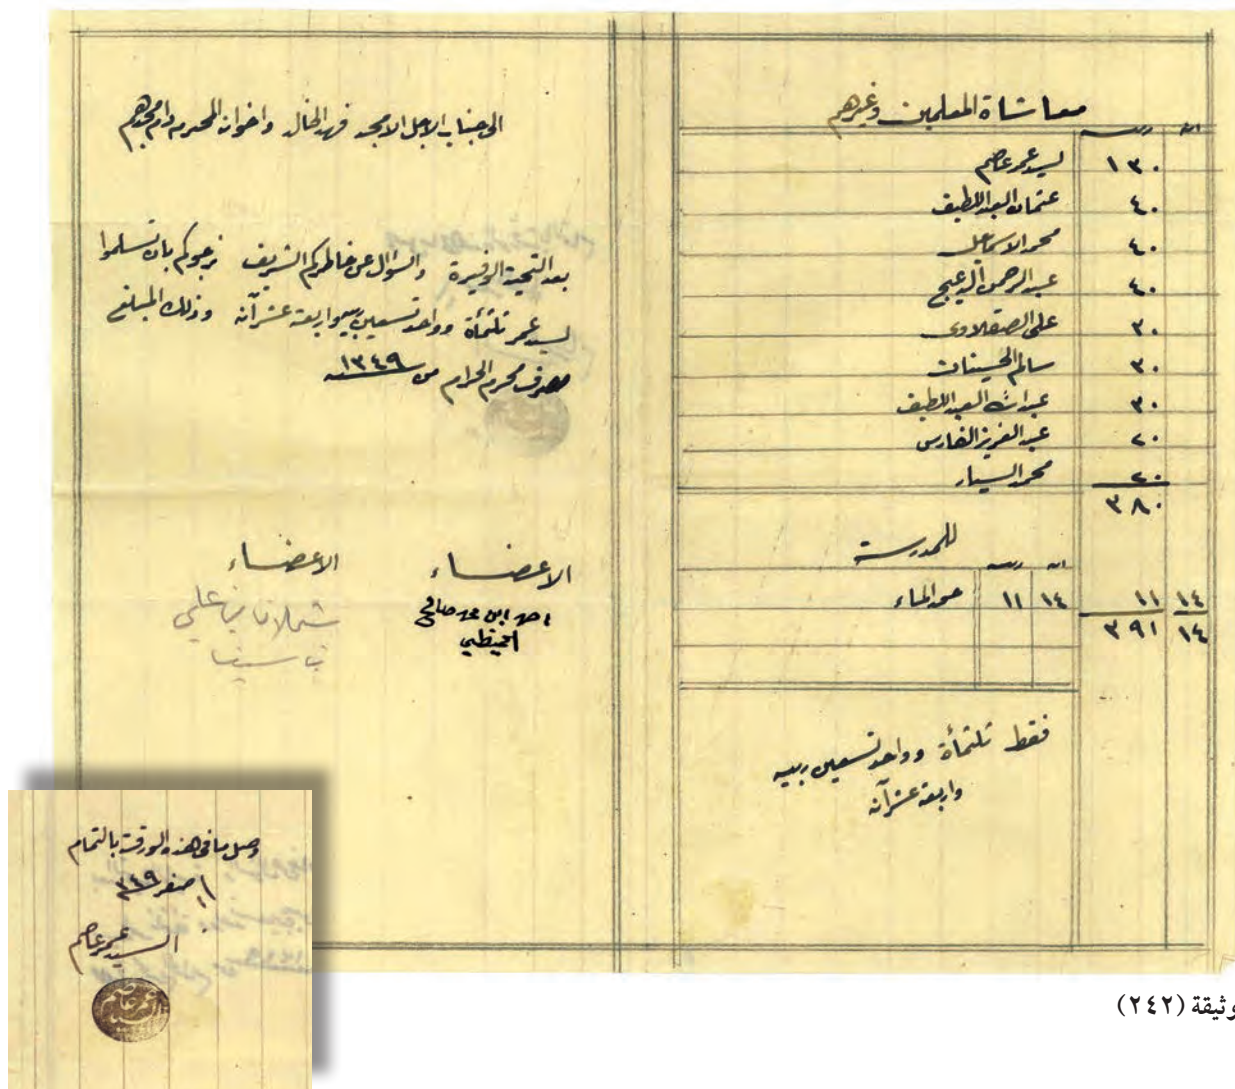 معاشاة المعلمين وغيرهم
انه ربيه
١٣٠ لسيد عمر عاصم
٤٠ عثمان العبد اللطيف
٤٠ محمد الاسماعيل
٤٠ عبد الرحمن
٣٠ على الصقلاوى
٣٠ سالم الحسينان
٣٠ عبد الله العبد اللطيف
٢٠ عبد العزيز الفارس
٢٠ محمد السيار
٣٨٠
للمدرسة
انه ربيه
١٤ ١١ ١٤ ١١ الماء
١٤ ٣٩١
فقط ثلثمأة وواحد تسعين ربيه
واربعة عشر آنه
الى جناب الاجل الامجد فهد الخالد واخوانه المحترم دام مجدهم
بعد التحية الوفيرة والسؤال عن خاطركم الشريف نرجوكم بان تسلموا
لسيد عمر ثلثمأة وواحد تسعين ربيه واربعة عشر آنه وذلك المبلغ
مصرف محرم الحرام من سنة ١٣٤٩
الاعضاء
احمد ابن محمد صالح
الحميضي
الاعضاء
شملان بن علي
بن سيف
وصل ما في هذه الورقة بالتمام
صفر ٣٤٩
السيد عمر عاصم
وثيقة (٢٤٢)